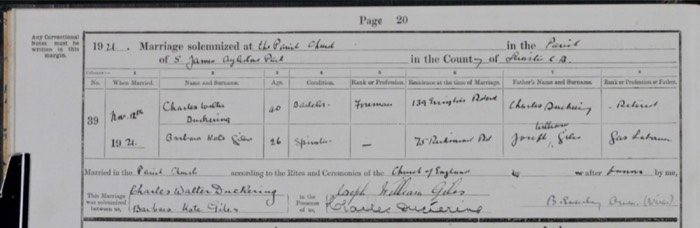 Page 20
Any Correctional Notes must be written in this margin.
1921. Marriage solemnized at the Parish Church in the Parish
of S. James Aylestone Park in the County of C.B.
No. When Married. Name and Surname. Age. Condition. Rank or Profession. Residence at the time of Marriage. Father's Name and Surname. Rank or Profession of Father.
39 Nov. 12th 1921. Charles Walter Duckering 40 Bachelor Foreman 139 Road Charles Duckering Retired
Barbara Kate Giles 26 Spinster — 75 Richmond Rd Joseph William Giles Gas Labourer
Married in the Parish Church according to the Rites and Ceremonies of the Church of England by or after banns by me,
This Marriage was solemnized between us, Charles Walter Duckering Barbara Kate Giles in the Presence of us, Joseph William Giles Charles Duckering (Vicar)